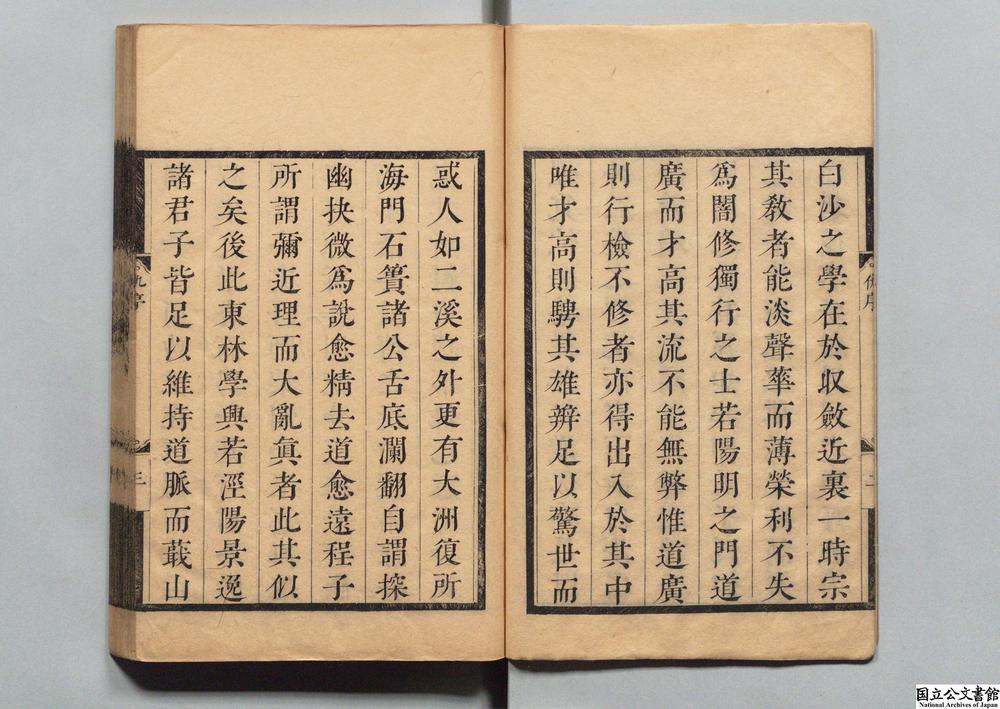 白沙之學在於収斂近裏一時宗
其敎者能淡聲華而薄榮利不失
爲闇修獨行之士若陽明之門道
廣而才高其流不能無弊惟道廣
則行檢不修者亦得出入於其中
唯才高則騁其雄辨足以驚世而
惑人如二溪之外更有大洲復所
海門石簣諸公舌底瀾翻自謂探
幽抉微爲說愈精去道愈遠程子
所謂彌近理而大亂眞者此其似
之矣後此東林學興若涇陽景逸
諸君子皆足以維持道脈而蕺山
三
国立公文書館
National Archives of Japan